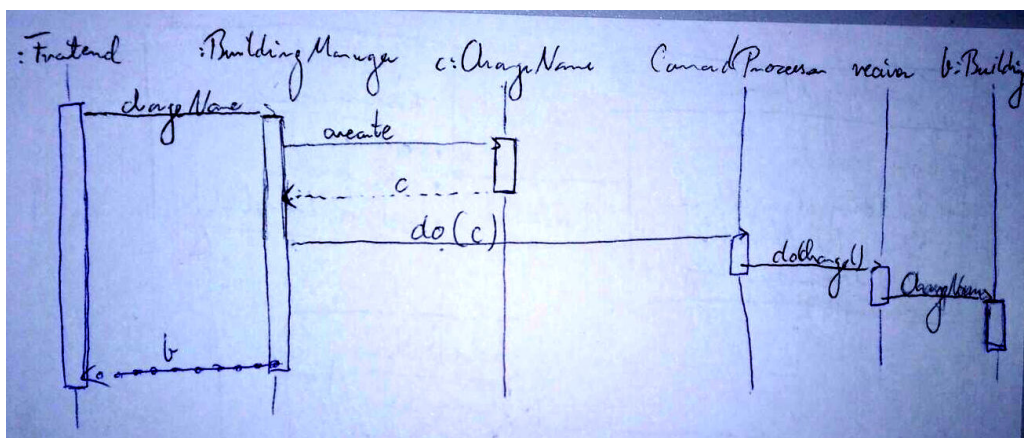 :Frontend :BuildingManager c:ChangeName CommandProcessor reciever b:Building
changeName
create
c
do(c)
doChange()
ChangeName
b